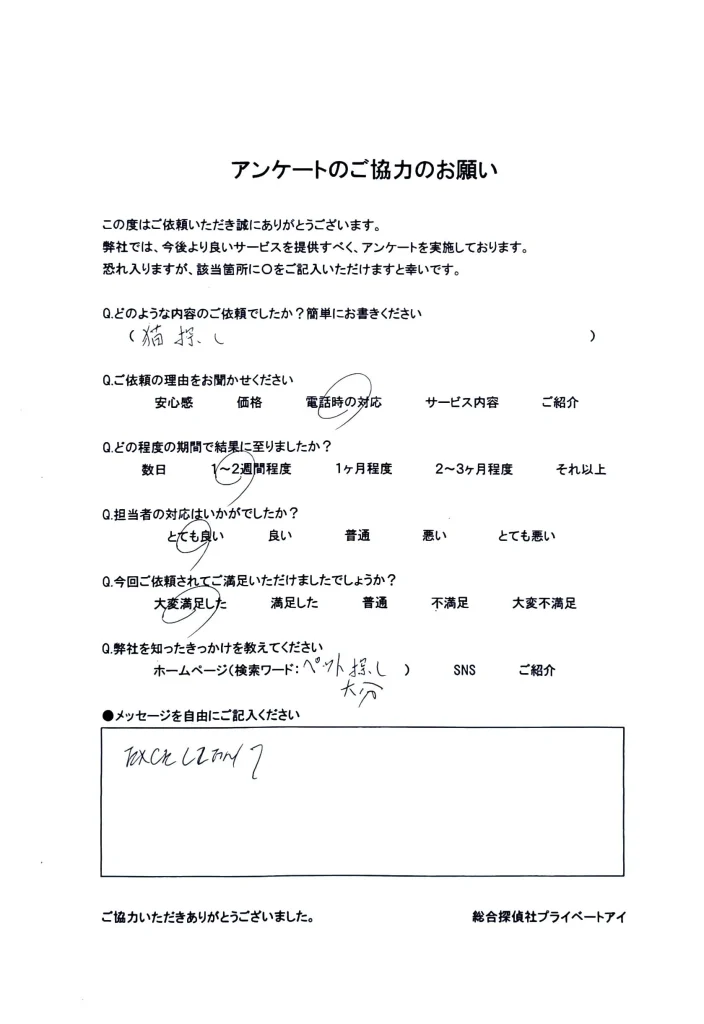 アンケートのご協力のお願い
この度はご依頼いただき誠にありがとうございます。
弊社では、今後より良いサービスを提供すべく、アンケートを実施しております。
恐れ入りますが、該当箇所に〇をご記入いただけますと幸いです。
Q.どのような内容のご依頼でしたか？簡単にお書きください
（ 猫探し ）
Q.ご依頼の理由をお聞かせください
安心感 価格 電話時の対応 サービス内容 ご紹介
Q.どの程度の期間で結果に至りましたか？
数日 1～2週間程度 1ヶ月程度 2～3ヶ月程度 それ以上
Q.担当者の対応はいかがでしたか？
とても良い 良い 普通 悪い とても悪い
Q.今回ご依頼されてご満足いただけましたでしょうか？
大変満足した 満足した 普通 不満足 大変不満足
Q.弊社を知ったきっかけを教えてください
ホームページ（検索ワード：ペット探し ） SNS ご紹介
大分
●メッセージを自由にご記入ください
ご協力いただきありがとうございました。 総合探偵社プライベートアイ